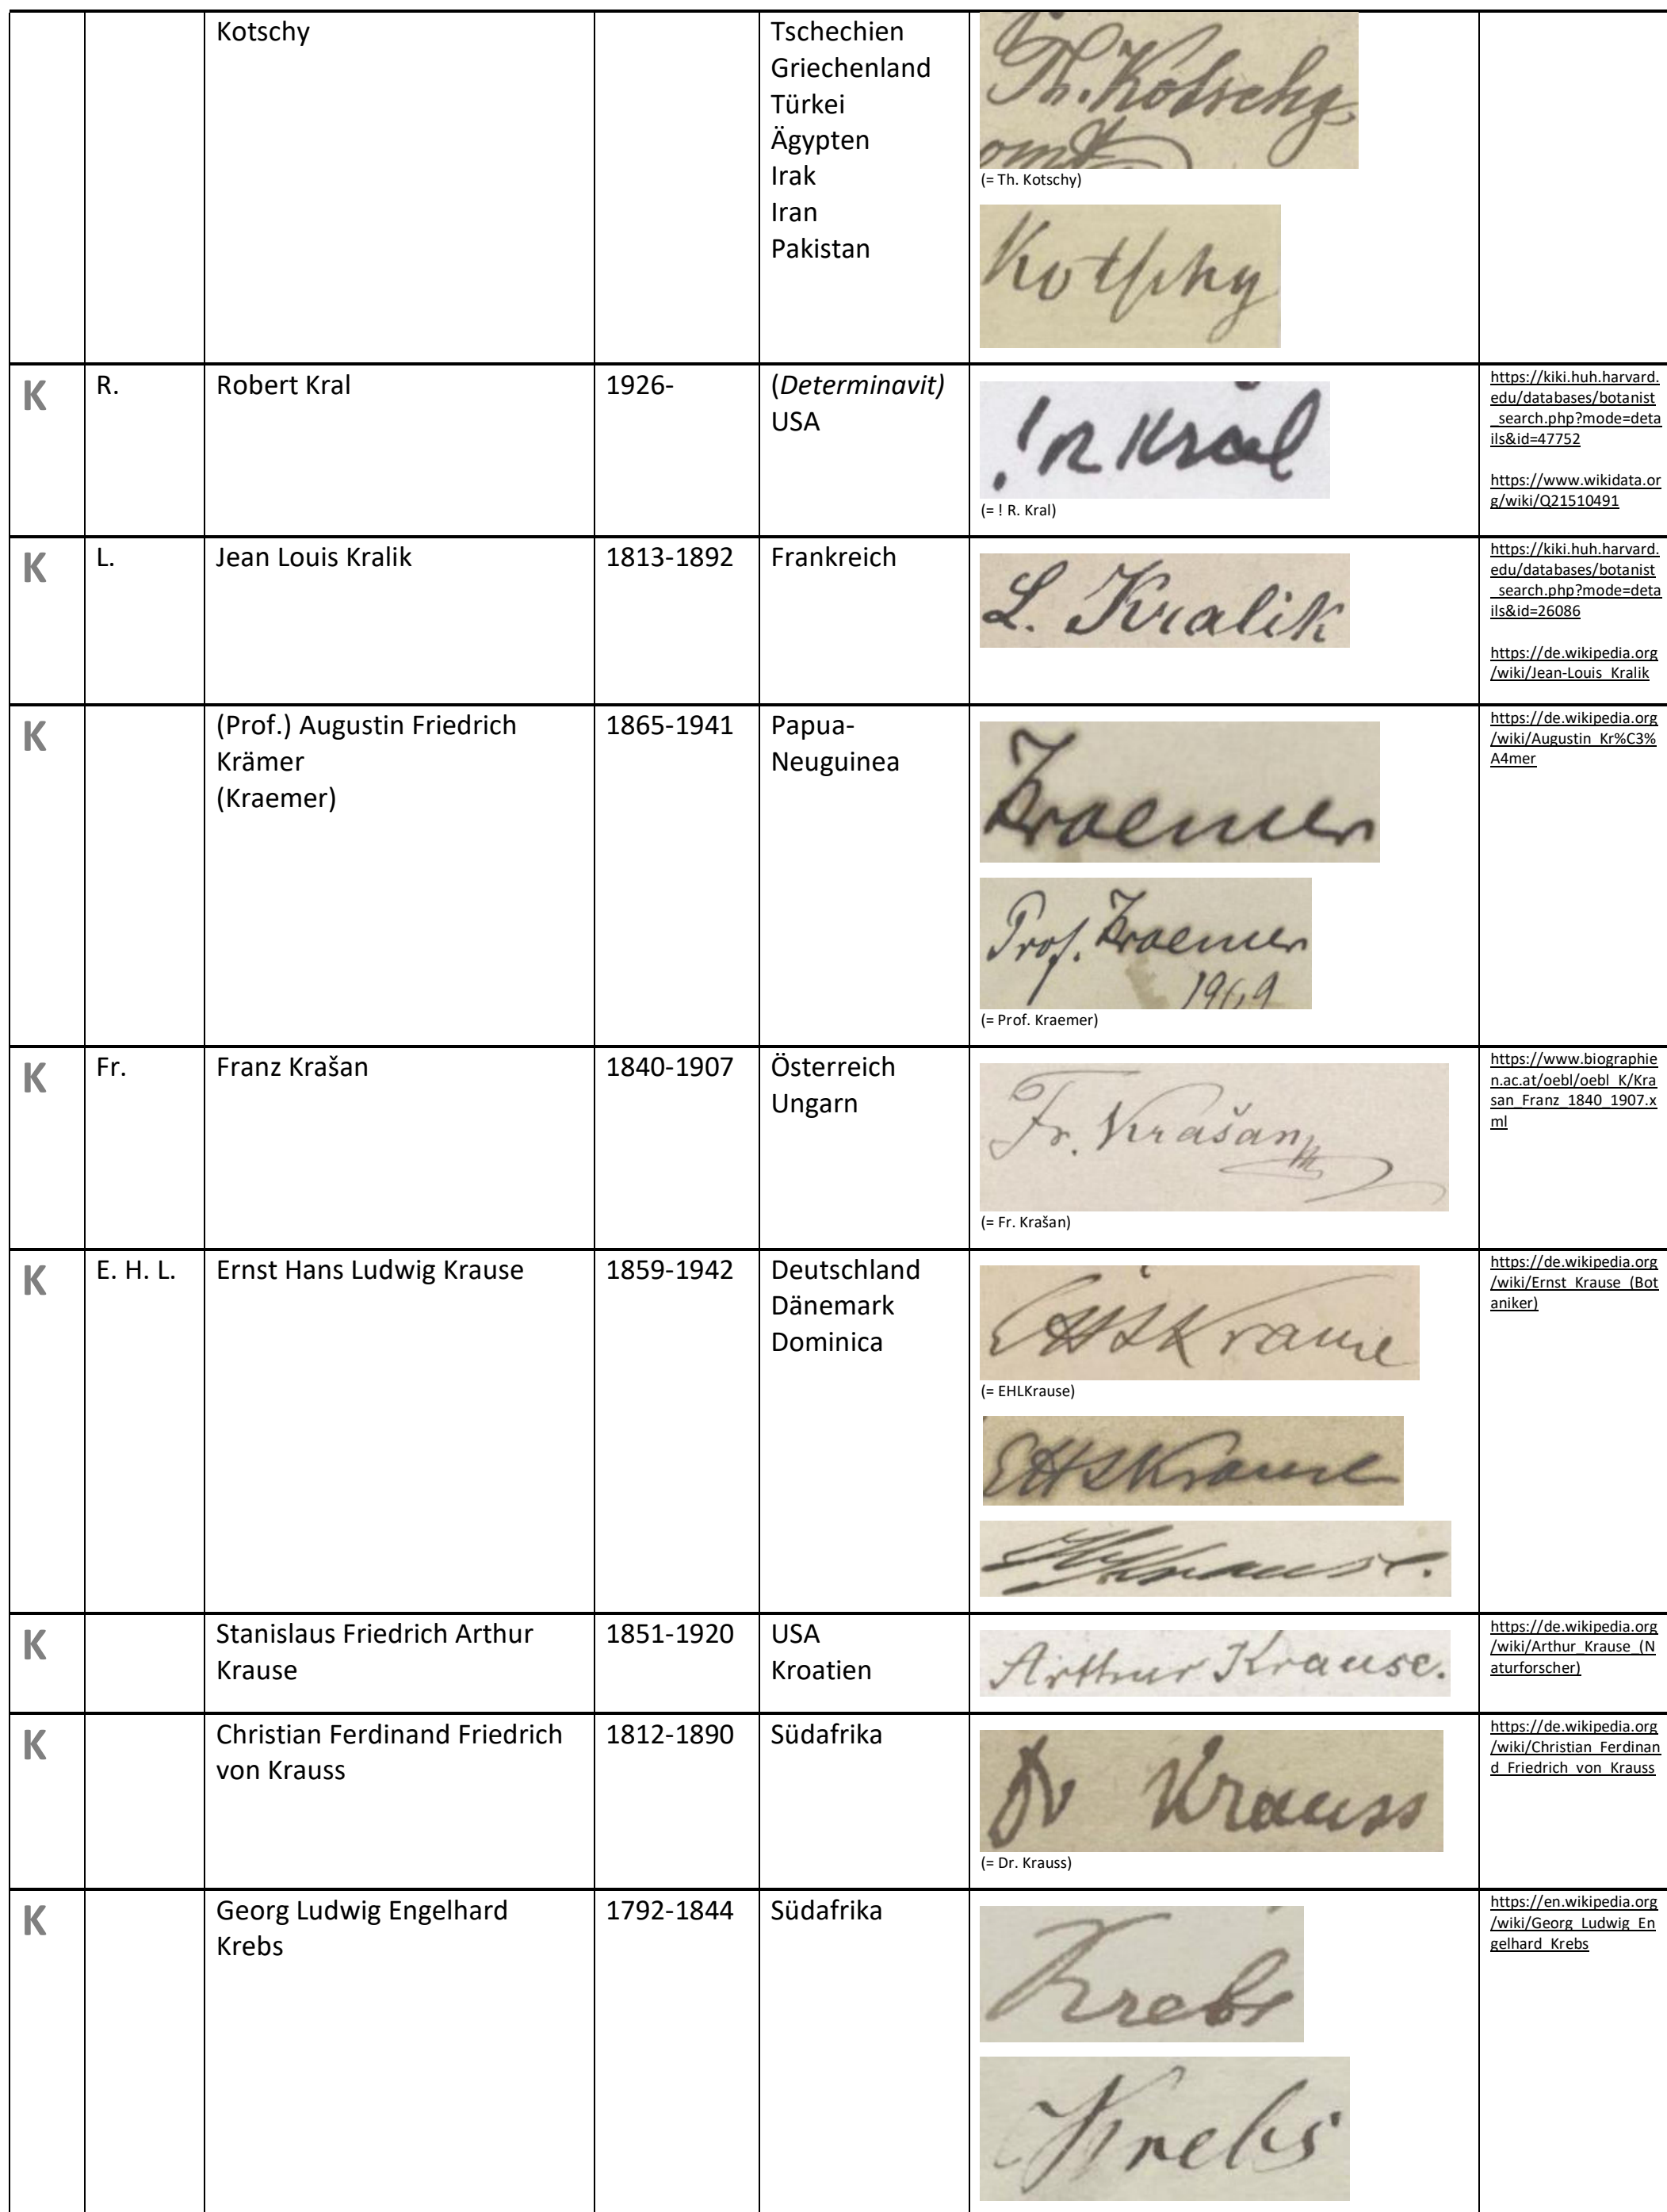 Kotschy
Tschechien
Griechenland
Türkei
Ägypten
Irak
Iran
Pakistan
Th. Kotschy
(= Th. Kotschy)
Kotschy
K
R.
Robert Kral
1926-
(Determinavit)
USA
! R Kral
(= ! R. Kral)
https://kiki.huh.harvard.
edu/databases/botanist
_search.php?mode=deta
ils&id=47752
https://www.wikidata.or
g/wiki/Q21510491
K
L.
Jean Louis Kralik
1813-1892
Frankreich
L. Kralik
https://kiki.huh.harvard.
edu/databases/botanist
_search.php?mode=deta
ils&id=26086
https://de.wikipedia.org
/wiki/Jean-Louis_Kralik
K
(Prof.) Augustin Friedrich
Krämer
(Kraemer)
1865-1941
Papua-
Neuguinea
Kraemer
Prof. Kraemer
(= Prof. Kraemer)
https://de.wikipedia.org
/wiki/Augustin_Kr%C3%
A4mer
K
Fr.
Franz Krašan
1840-1907
Österreich
Ungarn
Fr. Krašan
(= Fr. Krašan)
https://www.biographie
n.ac.at/oebl/oebl_K/Kra
san_Franz_1840_1907.x
ml
K
E. H. L.
Ernst Hans Ludwig Krause
1859-1942
Deutschland
Dänemark
Dominica
EHLKrause
(= EHLKrause)
EHLKrause
EHLKrause.
https://de.wikipedia.org
/wiki/Ernst_Krause_(Bot
aniker)
K
Stanislaus Friedrich Arthur
Krause
1851-1920
USA
Kroatien
Arthur Krause.
https://de.wikipedia.org
/wiki/Arthur_Krause_(N
aturforscher)
K
Christian Ferdinand Friedrich
von Krauss
1812-1890
Südafrika
Dr Krauss
(= Dr. Krauss)
https://de.wikipedia.org
/wiki/Christian_Ferdinan
d_Friedrich_von_Krauss
K
Georg Ludwig Engelhard
Krebs
1792-1844
Südafrika
Krebs
Krebs
https://en.wikipedia.org
/wiki/Georg_Ludwig_En
gelhard_Krebs